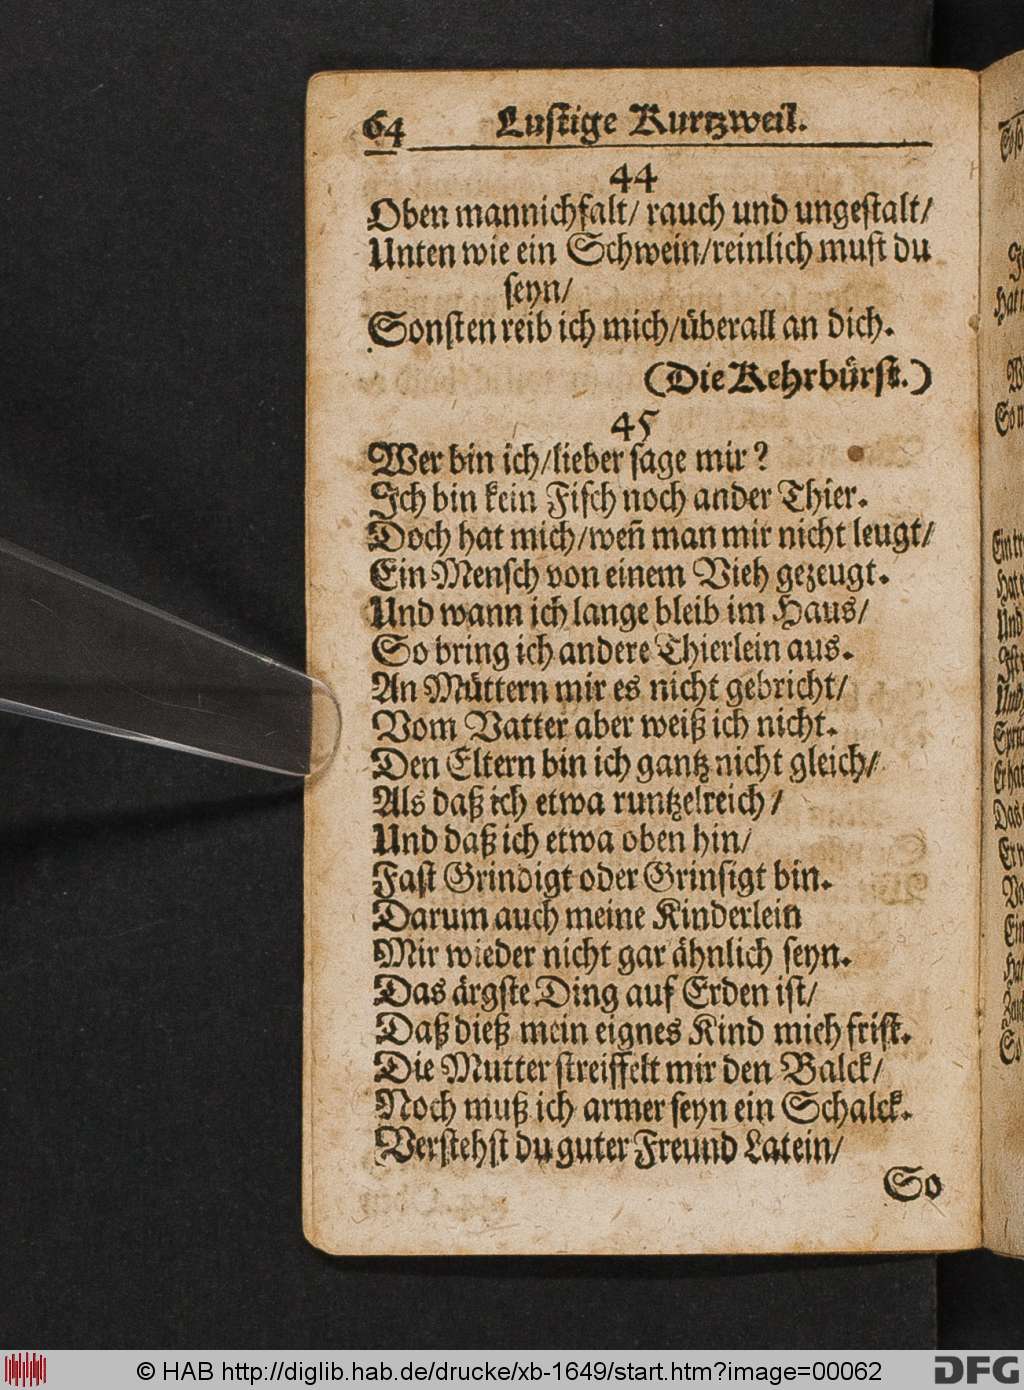 64 Lustige Kurtzweil.
44
Oben mannichfalt/ rauch und ungestalt/
Unten wie ein Schwein/reinlich must du
seyn/
Sonsten reib ich mich/überall an dich.
(Die Kehrbürst.)
45
Wer bin ich/lieber sage mir?
Ich bin kein Fisch noch ander Thier.
Doch hat mich/weñ man mir nicht leugt/
Ein Mensch von einem Vieh gezeugt.
Und wann ich lange bleib im Haus/
So bring ich andere Thierlein aus.
An Müttern mir es nicht gebricht/
Vom Vatter aber weiß ich nicht.
Den Eltern bin ich gantz nicht gleich/
Als daß ich etwa runtzelreich/
Und daß ich etwa oben hin/
Fast Grindigt oder Grinsigt bin.
Darum auch meine Kinderlein
Mir wieder nicht gar ähnlich seyn.
Das ärgste Ding auf Erden ist/
Daß dieß mein eignes Kind mich frist.
Die Mutter streiffelt mir den Balck/
Noch muß ich armer seyn ein Schalck.
Verstehst du guter Freund Latein/
So
© HAB http://diglib.hab.de/drucke/xb-1649/start.htm?image=00062
DFG